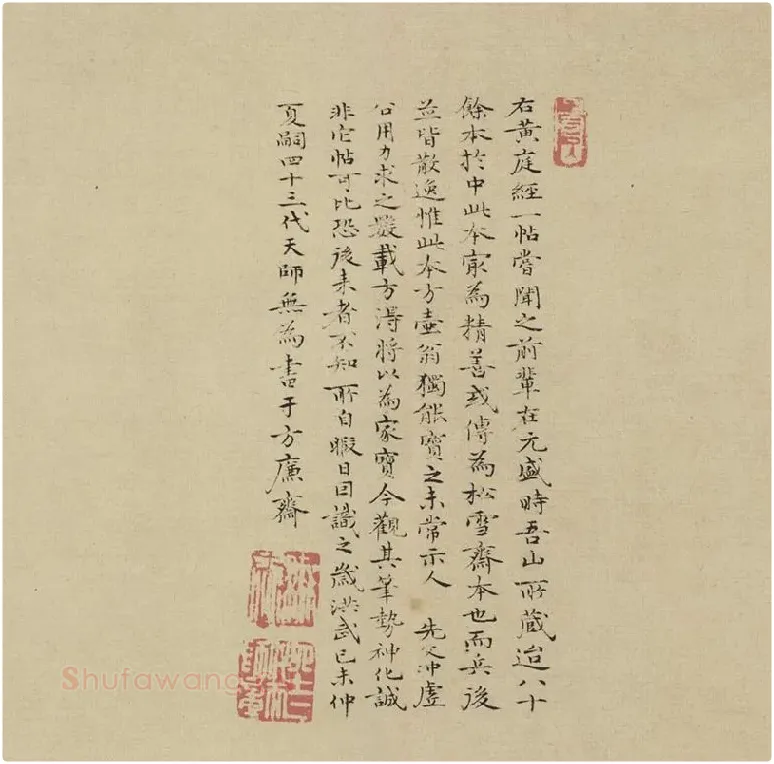 右黃庭經一帖嘗聞之前輩在元盛時吾山所藏迨八十
餘本於中此本寂為精善或傳為松雪齋本也而兵後
並皆散逸惟此本方壺翁獨能寶之未常示人 先父沖虛
公用力求之數載方得將以為家寶今觀其筆勢神化誠
非它帖可比恐後來者不知所自暇日因識之歲洪武己未仲
夏嗣四十三代天師無為書于方廉齋
Shufawang